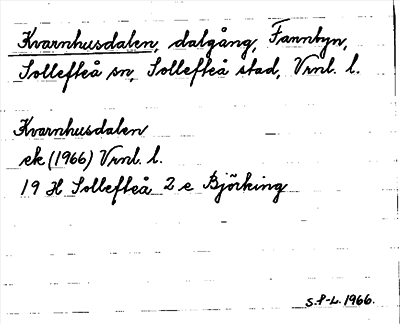 Kvarnhusdalen, dalgång, Fannbyn,
Sollefteå sn, Sollefteå stad, Vrnl. l.
Kvarnhusdalen
ek (1966) Vrnl. l.
19 H Sollefteå 2 e Björking
S.P-L. 1966.